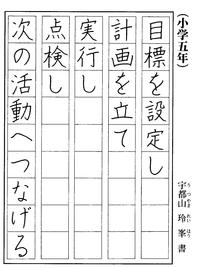 (小学五年)
宇都山玲峯書
うつやまれいほう
目標を設定し
計画を立て
実行し
点検し
次の活動へつなげる